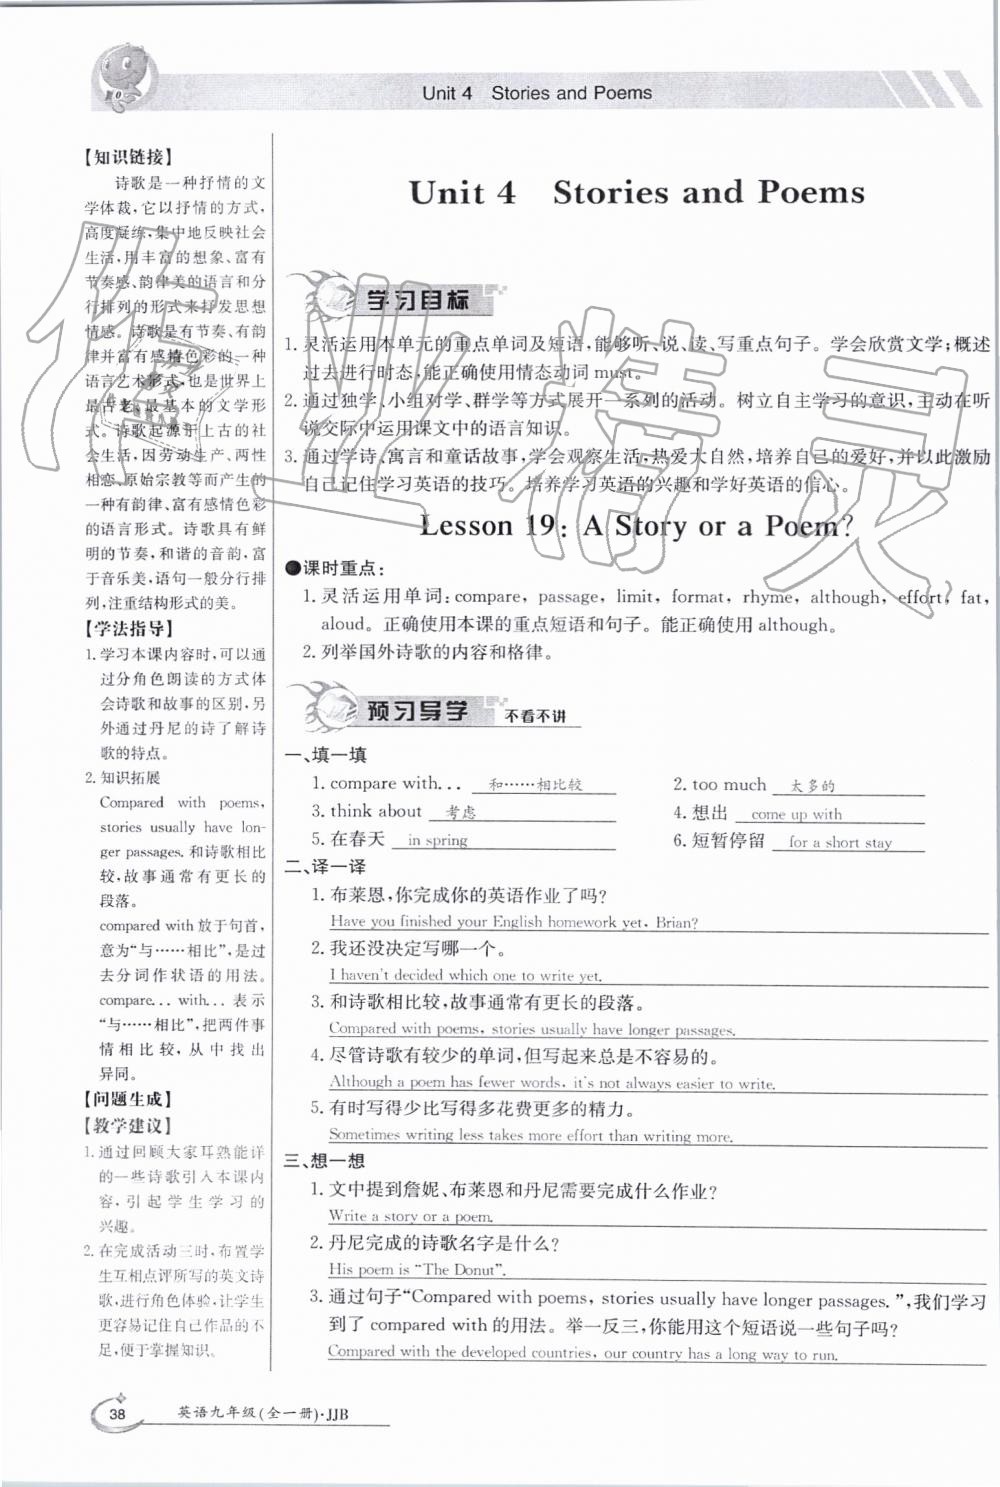 Unit 4 Stories and Poems
【知识链接】
诗歌是一种抒情的文
学体裁,它以抒情的方式,
高度凝练,集中地反映社会
生活,用丰富的想象、富有
节奏感、韵律美的语言和分
行排列的形式来抒发思想
情感。诗歌是有节奏、有韵
律并富有感情色彩的一种
语言艺术形式,也是世界上
最古老、最基本的文学形
式。诗歌起源于上古的社
会生活,因劳动生产、两性
相恋、原始宗教等而产生的
一种有韵律、富有感情色彩
的语言形式。诗歌具有鲜
明的节奏,和谐的音韵,富
于音乐美,语句一般分行排
列,注重结构形式的美。
【学法指导】
1. 学习本课内容时,可以通
过分角色朗读的方式体
会诗歌和故事的区别,另
外通过丹尼的诗了解诗
歌的特点。
2. 知识拓展
Compared with poems,
stories usually have lon-
ger passages. 和诗歌相比
较,故事通常有更长的
段落。
compared with 放于句首,
意为“与……相比”,是过
去分词作状语的用法。
compare... with... 表示
“与……相比”,把两件事
情相比较,从中找出
异同。
【问题生成】
【教学建议】
1. 通过回顾大家耳熟能详
的一些诗歌引入本课内
容,引起学生学习的
兴趣。
2. 在完成活动三时,布置学
生互相点评所写的英文诗
歌,进行角色体验,让学生
更容易记住自己作品的不
足,便于掌握知识。
Unit 4 Stories and Poems
学习目标
1. 灵活运用本单元的重点单词及短语,能够听、说、读、写重点句子。学会欣赏文学;概述
过去进行时态,能正确使用情态动词 must。
2. 通过独学、小组对学、群学等方式展开一系列的活动。树立自主学习的意识,主动在听
说交际中运用课文中的语言知识。
3. 通过学诗、寓言和童话故事,学会观察生活,热爱大自然,培养自己的爱好,并以此激励
自己记住学习英语的技巧。培养学习英语的兴趣和学好英语的信心。
Lesson 19: A Story or a Poem?
●课时重点:
1. 灵活运用单词: compare, passage, limit, format, rhyme, although, effort, fat,
aloud。正确使用本课的重点短语和句子。能正确使用 although。
2. 列举国外诗歌的内容和格律。
预习导学 不看不讲
一、填一填
1. compare with... 和……相比较 2. too much 太多的
3. think about 考虑 4. 想出 come up with
5. 在春天 in spring 6. 短暂停留 for a short stay
二、译一译
1. 布莱恩,你完成你的英语作业了吗?
Have you finished your English homework yet, Brian?
2. 我还没决定写哪一个。
I haven't decided which one to write yet.
3. 和诗歌相比较,故事通常有更长的段落。
Compared with poems, stories usually have longer passages.
4. 尽管诗歌有较少的单词,但写起来总是不容易的。
Although a poem has fewer words, it's not always easier to write.
5. 有时写得少比写得多花费更多的精力。
Sometimes writing less takes more effort than writing more.
三、想一想
1. 文中提到詹妮、布莱恩和丹尼需要完成什么作业?
Write a story or a poem.
2. 丹尼完成的诗歌名字是什么?
His poem is “The Donut”.
3. 通过句子“Compared with poems, stories usually have longer passages.”,我们学习
到了 compared with 的用法。举一反三,你能用这个短语说一些句子吗?
Compared with the developed countries, our country has a long way to run.
38 英语九年级(全一册)·JJB
作业精灵